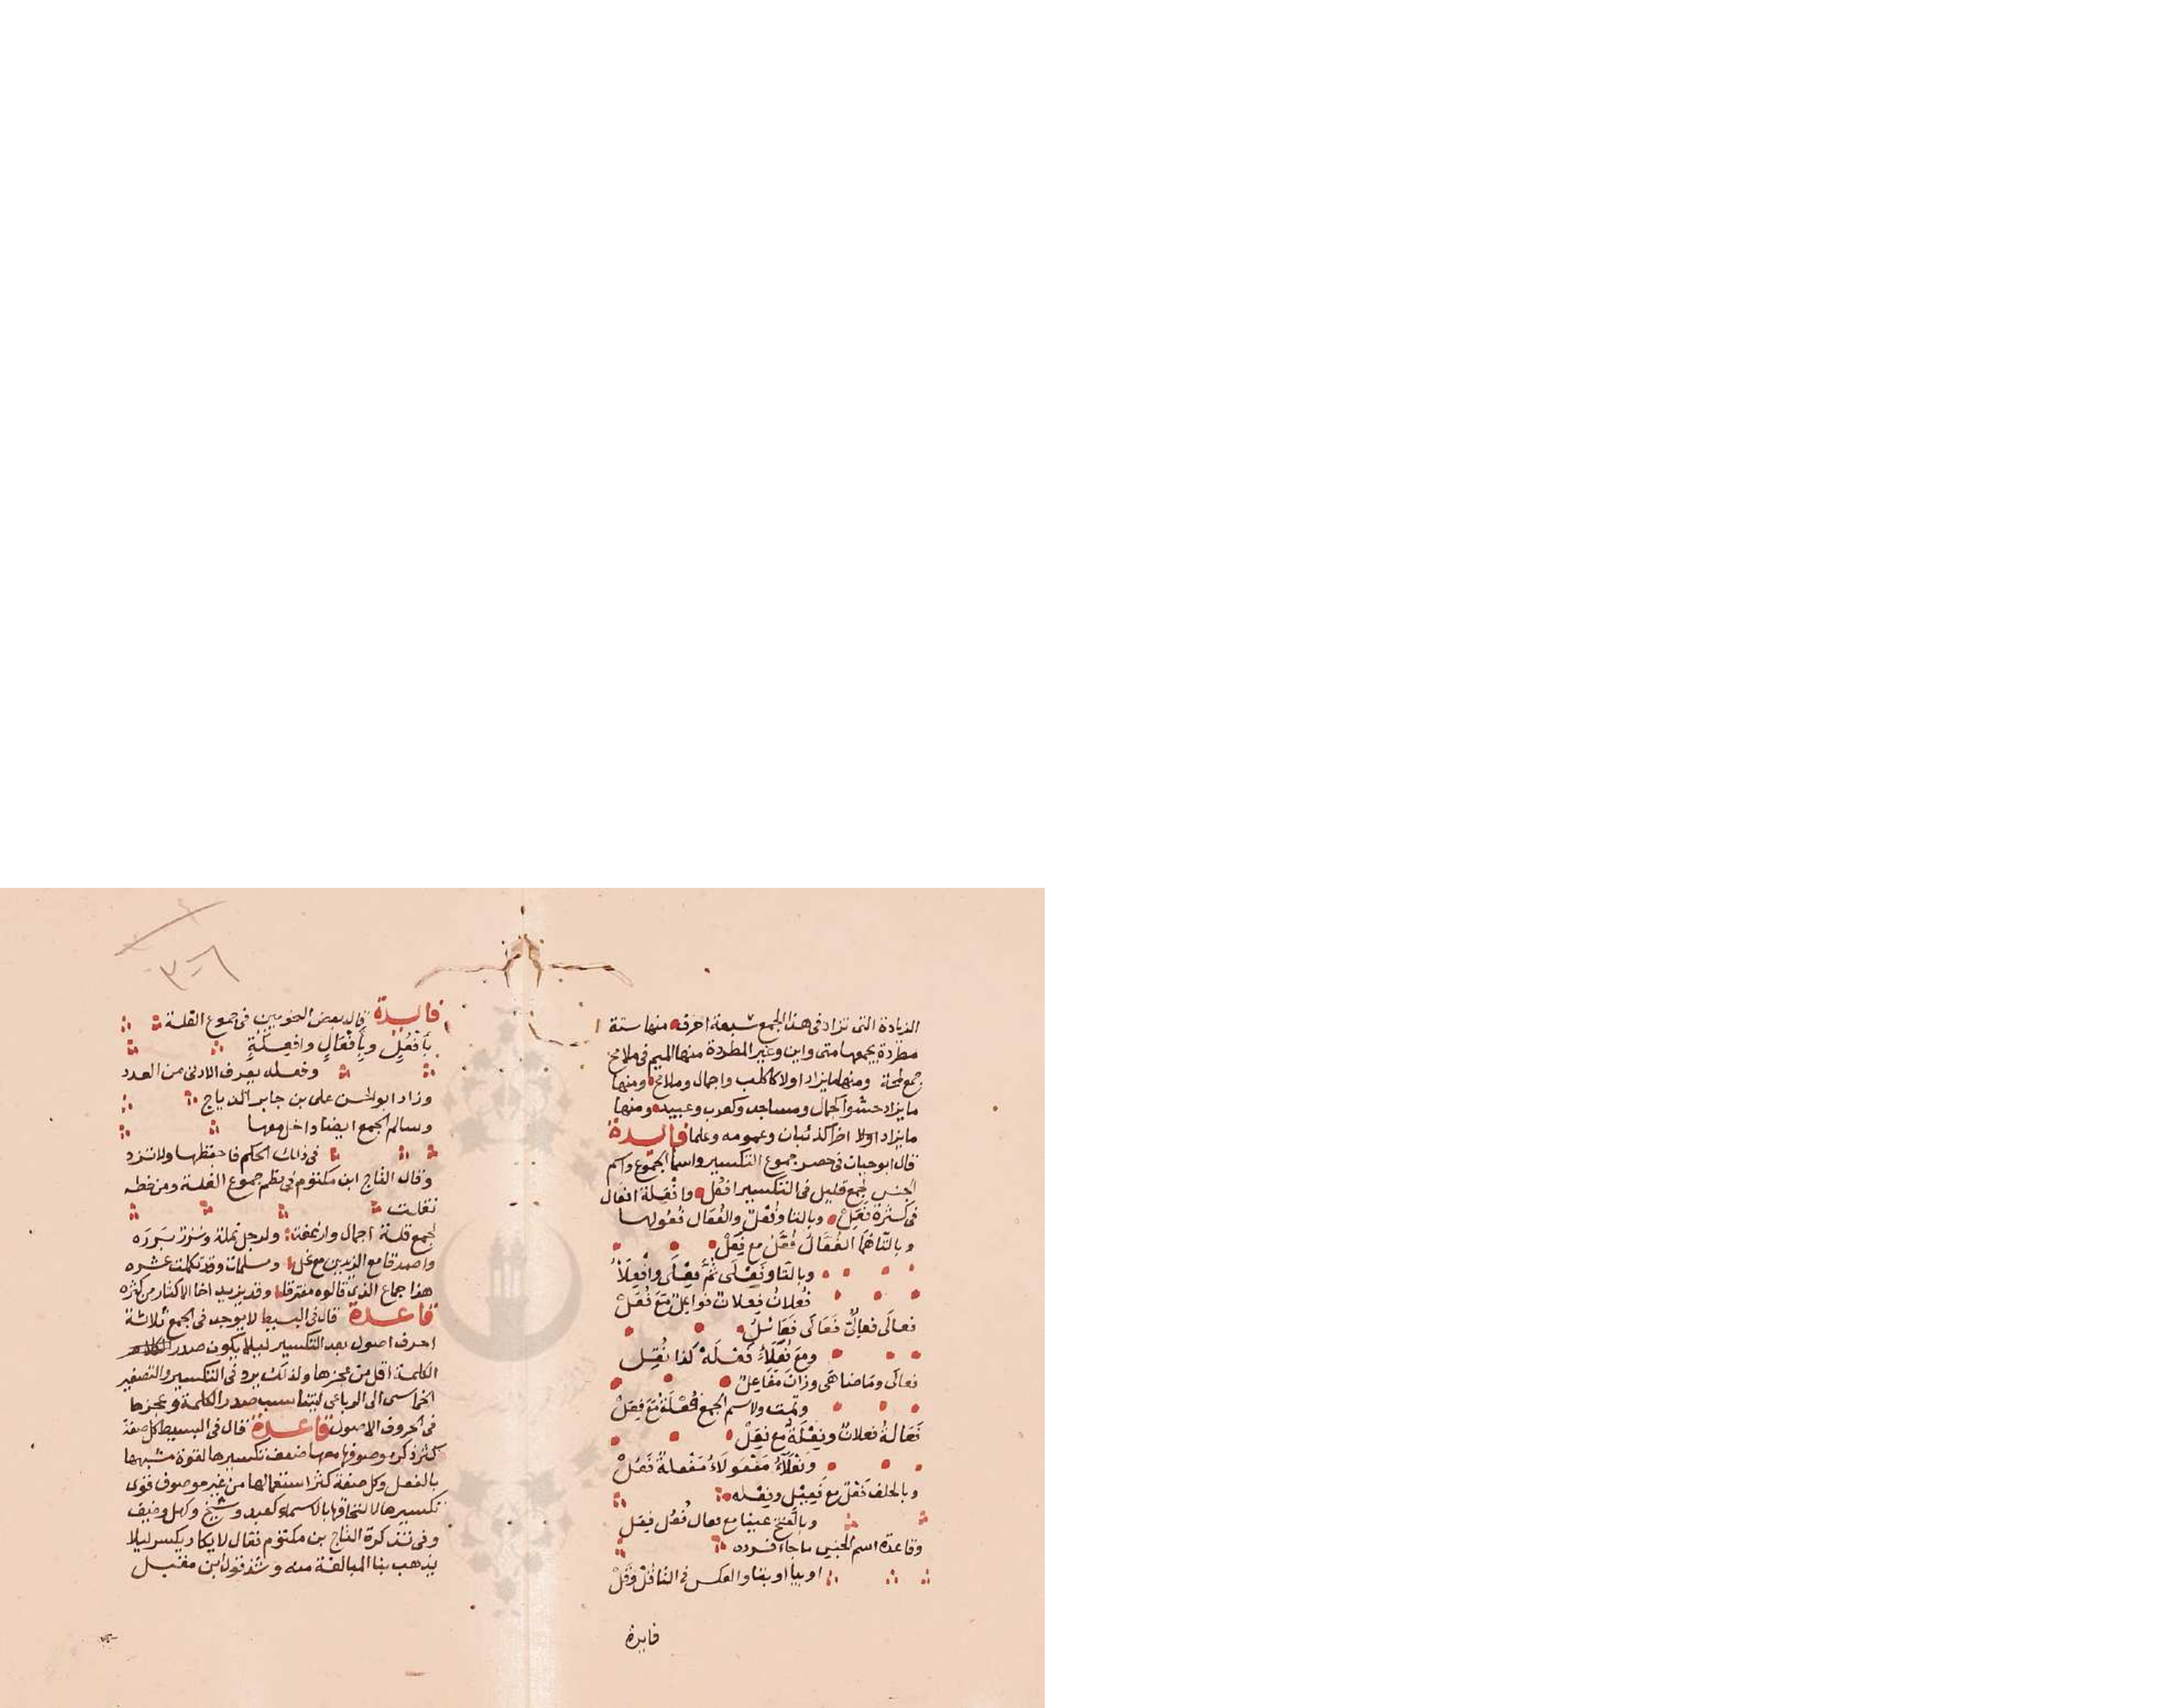 الزيادة التى تزاد فى هذا الجمع سبعة احرف منها ستة
مطردة يجمعها متى واين وغير المطردة منها الميم فى ملامح
جمع لمحة ومنها ما يزاد اولا كاكلب واجمال وملامح ومنها
ما يزاد حشوا كجمال ومساجد وكعوب وعبيد ومنها
ما يزاد اولا اخرا كذئبان وعمومه وعلما فايدة
قال ابو حيان فى حصر جموع التكسير واسما الجموع واسم
الجنس لجمع قليل فى التكسير افعل وافعلة افعال
فى كثرة فعل وبالتا وفعل والفعال فعولها
وبالتا هما الفعال فعل مع فعل
وبالتا وفعلى ثم فعلى وافعلاء
فعلان فعلان فواعل مع فعل
فعالى فعال فعالى فعائل
ومع فعلاء فعلة كذا فعل
فعالى وما ضاهى وزان مفاعل
وتمت ولاسم الجمع فعلة مع فعل
فعالة فعلان وفعلة مع فعل
وفعلاء مفعولاء مفعلة فعل
وبالخلف فعل مع فعيل وفعله
وبالفتح عينا مع فعال فعل فعل
وقاعدة اسم الجنس ما جاء فرده
او بيا او بتا والعكس فى التا قل وقل
فايدة
٣٠٦
فايدة قال بعض النحويين فى جموع القلة
بأفعل وبأفعال وافعلة
وفعله يعرف الادنى من العدد
وزاد ابو الحسن على بن جابر الدباج
وسالم الجمع ايضا داخل معها
فى ذلك الحكم فاحفظها ولا تزد
وقال التاج ابن مكتوم فى نظم جموع القلة ومن خطه
نقلت
لجمع قلة اجمال وارغفة ولدجل غلمة وسرر بررة
واصدقا مع الزيدين مع نحل ومسلمات وقد تكملت عشره
هذا جماع الذى قالوه مفترقا وقد يزيد اخا الاكثار من كثره
قاعدة قال فى البسيط لا يوجد فى الجمع ثلاثة
احرف اصول بعد التكسير ليلا يكون صدر
الكلمة اقل من عجزها ولذلك يرد فى التكسير والتصغير
الخماسى الى الرباعى ليتناسب صدر الكلمة وعجزها
فى الحروف الاصول قاعدة قال فى البسيط كل صفة
كثر ذكر موصوفها معها ضعف تكسيرها لقوة شبهها
بالفعل وكل صفة كثر استعمالها من غير موصوف قوى
تكسيرها لالتحاقها بالاسماء كعبد وشيخ وكهل وضيف
وفى تذكرة التاج بن مكتوم فعال لا يكاد يكسر ليلا
يذهب بنا المبالغة منه وشذ قول ابن مقبل